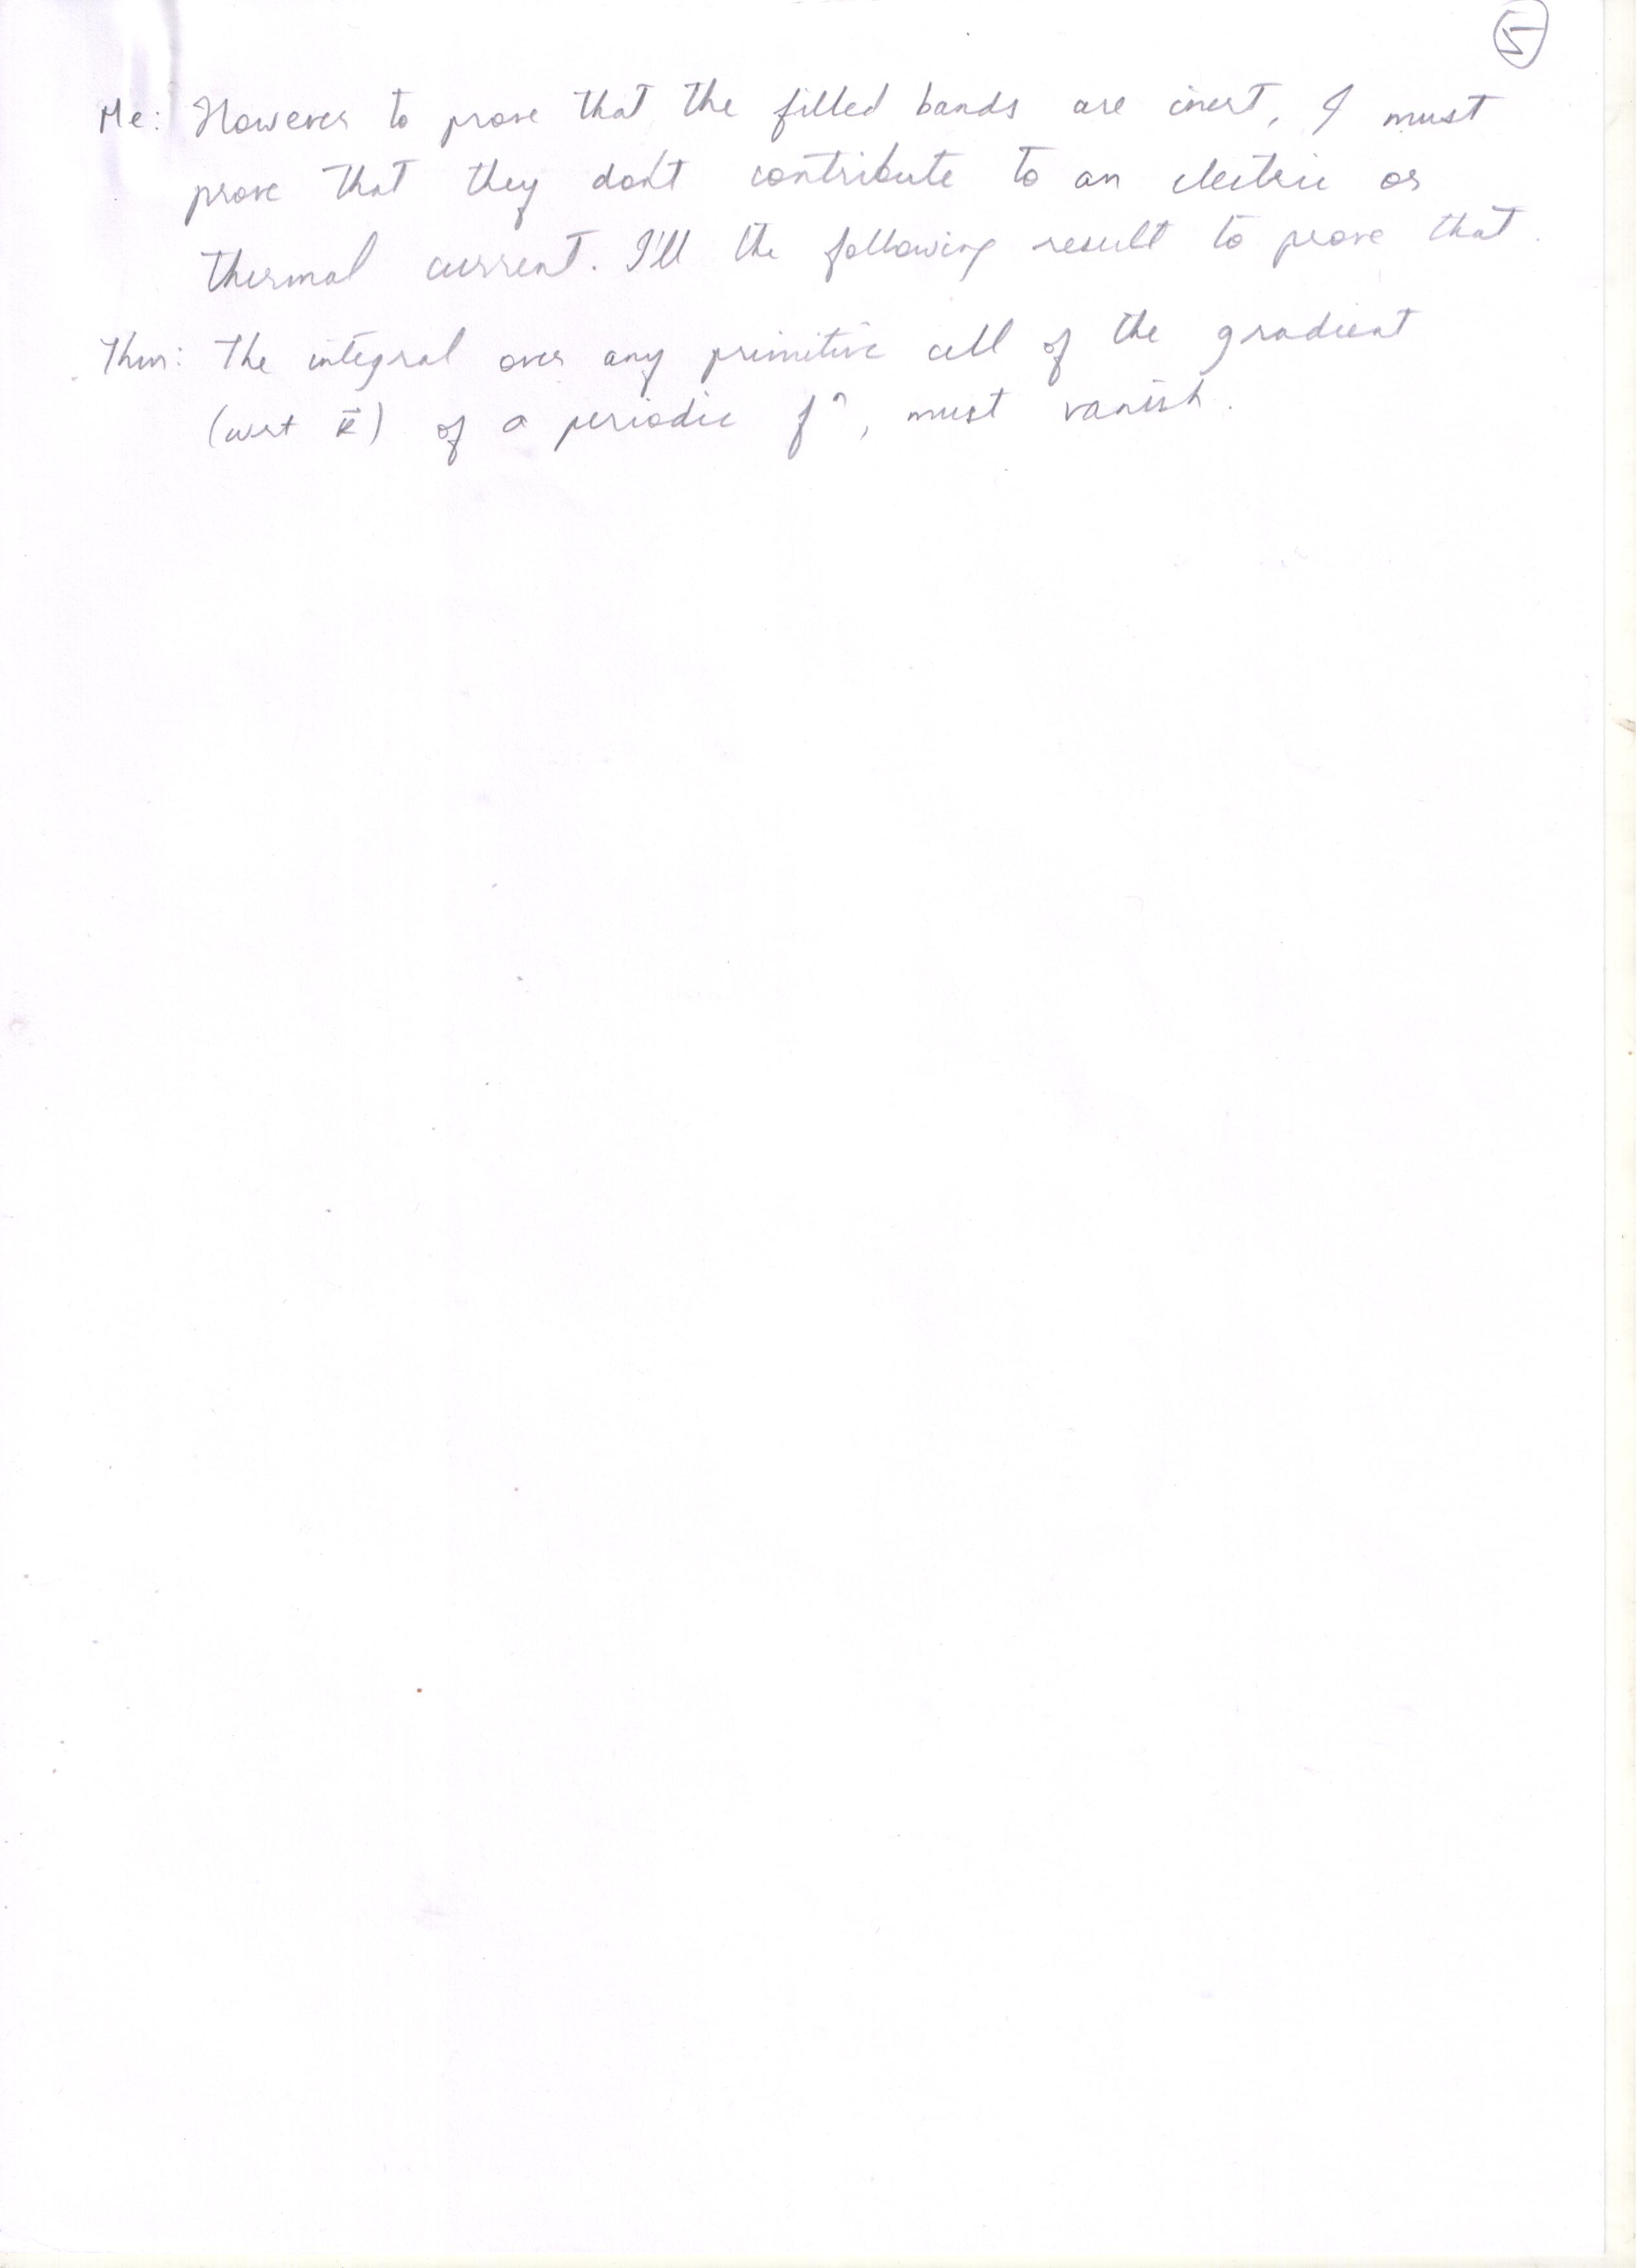 5
Me: However to prove that the filled bands are inert, I must
prove that they don't contribute to an electric or
thermal current. I'll the following result to prove that.
Thm: The integral over any primitive cell of the gradient
(wrt k⃗) of a periodic fⁿ, must vanish.